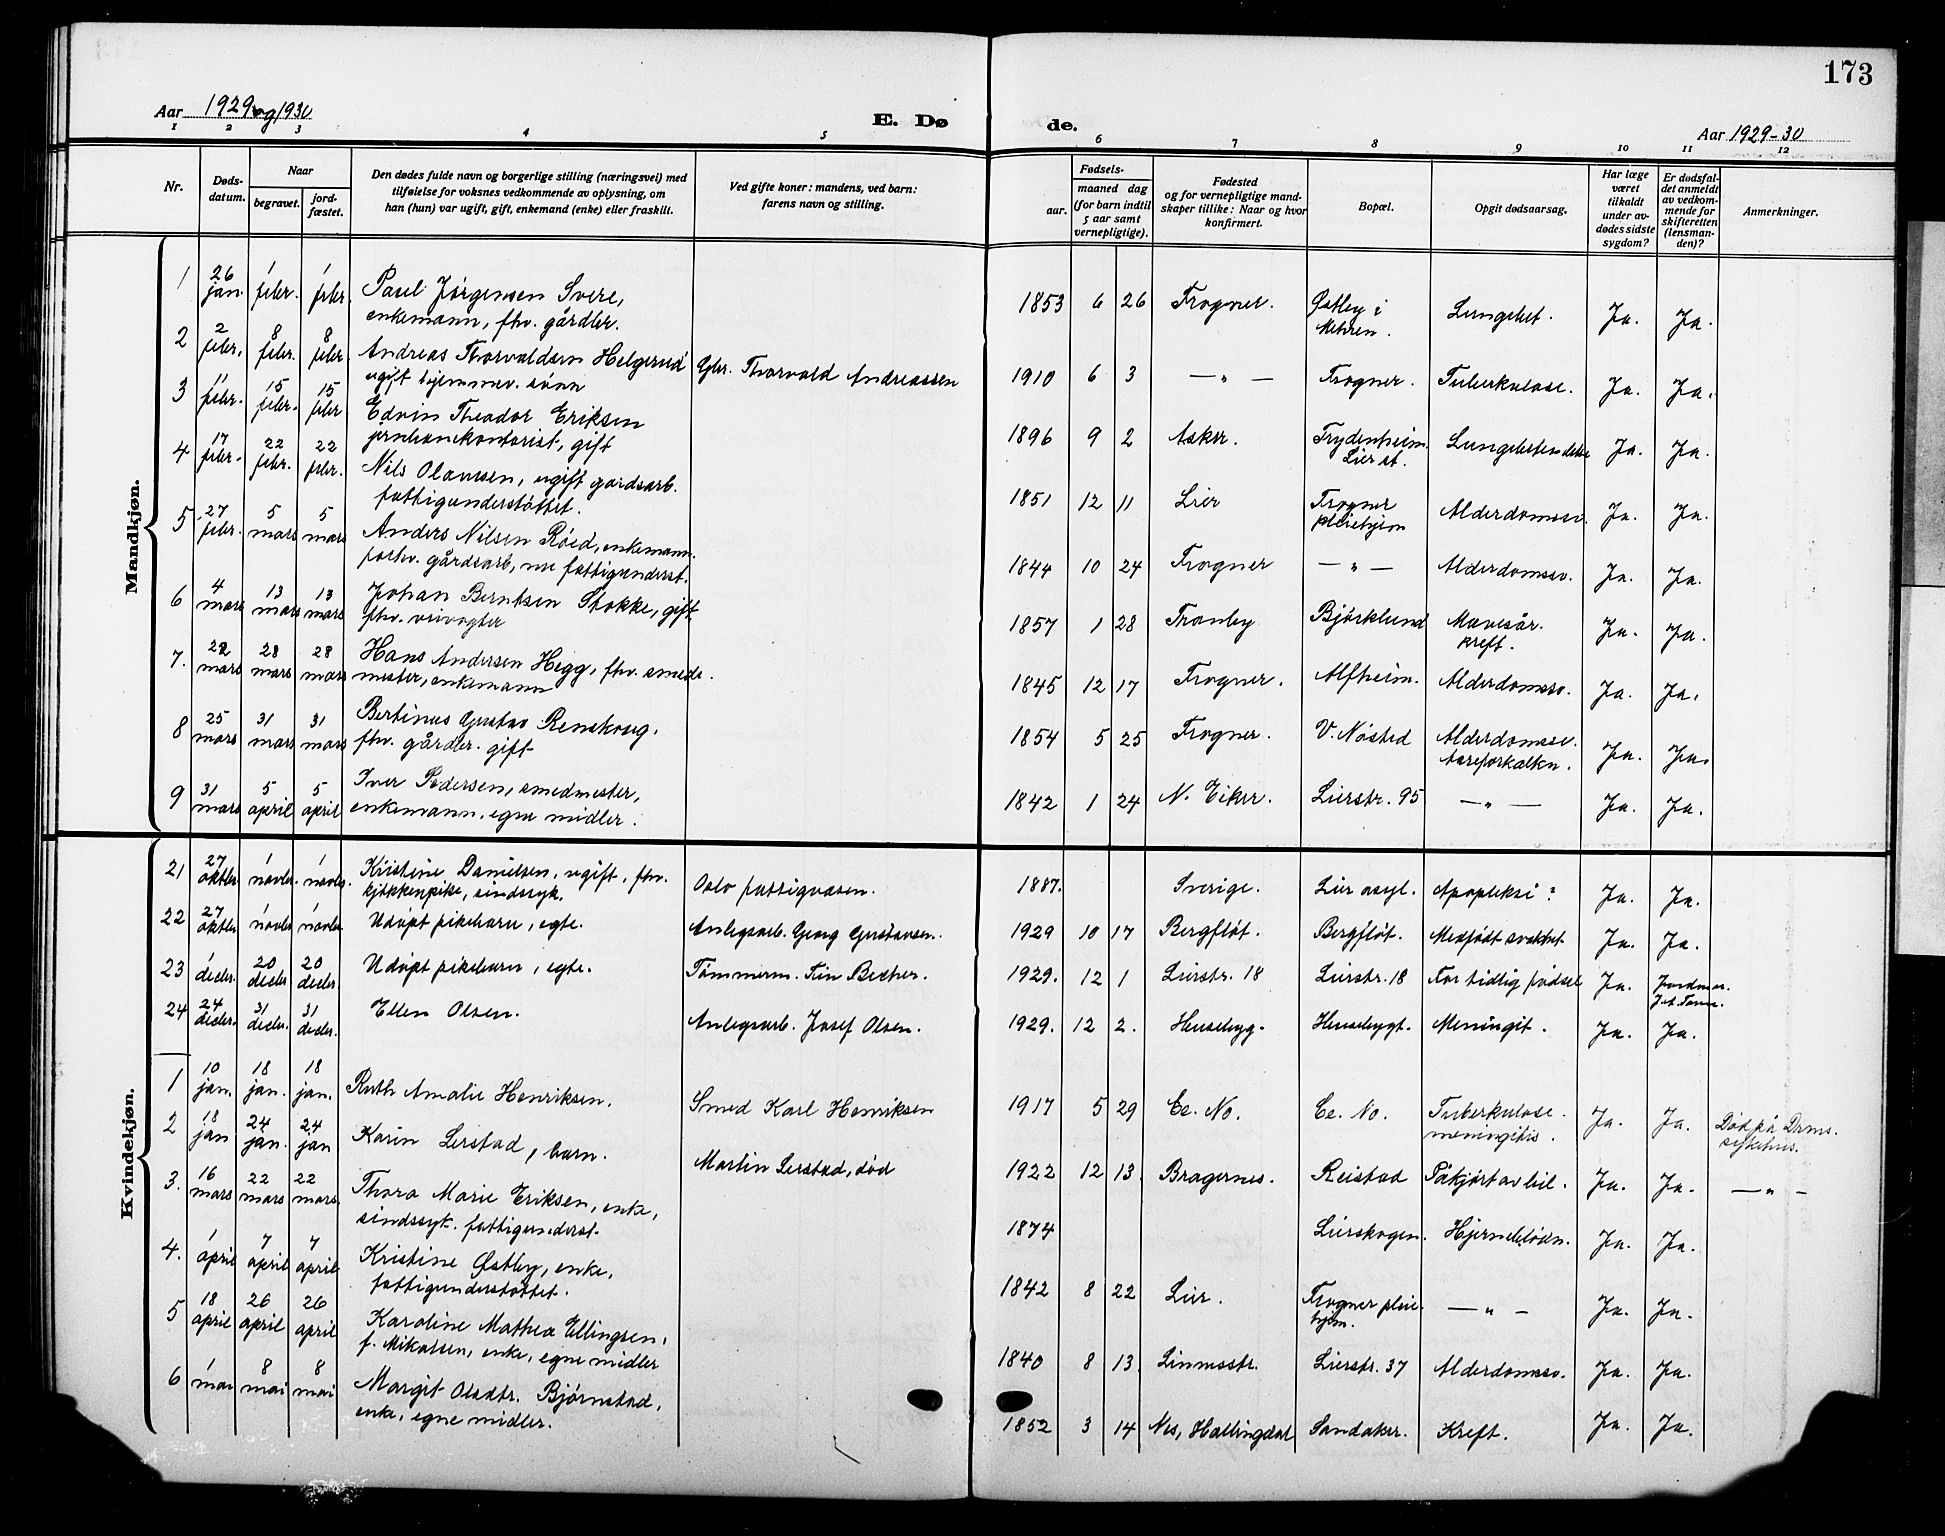 173
Aar 1929 og 1930
E. Dø
de.
Aar 1929-30
1 2 3 4 5 6 7 8 9 10 11 12
Nr.
Døds-
datum.
Naar
begravet.
jord-
fæstet.
Den dødes fulde navn og borgerlige stilling (næringsvei) med
tilføielse for voksnes vedkommende av oplysning, om
han (hun) var ugift, gift, enkemand (enke) eller fraskilt.
Ved gifte koner: mandens, ved barn:
farens navn og stilling.
Fødsels-
aar.
maaned dag
(for barn indtil
5 aar samt
vernepligtige).
Fødested
og for vernepligtige mand-
skaper tillike: Naar og hvor
konfirmert.
Bopæl.
Opgit dødsaarsag.
Har læge
været
tilkaldt
under av-
dødes sidste
sygdom?
Er dødsfal-
det anmeldt
av vedkom-
mende for
skifteretten
(lensman-
den)?
Anmerkninger.
Mandkjøn.
1 26 jan. 1 febr. 1 febr. Paul Jørgensen Svere, 1853 6 26 Frogner. Østby i Lungebet. Ja. Ja.
enkemann, fhv. gårdbr.
2 2 febr. 8 febr. 8 febr. Andreas Thorvaldsen Helgerud Gbr. Thorvald Andreassen 1910 6 3 — " — Frogner. Tuberkulose. Ja. Ja.
ugift hjemmev. sønn
3 11 febr. 15 febr. 15 febr. Edvin Theodor Eriksen 1896 9 2 Asker. Frydenheim Lungebetendelse Ja. Ja.
jernbanekontorist, gift Lier st.
4 17 febr. 22 febr. 22 febr. Nils Olavesen, ugift gardsarb. 1851 12 11 Lier Frogner Alderdomssv. Ja. Ja.
fattigunderstøttet. pleiehjem
5 27 febr. 5 mars 5 mars Anders Nilsen Røed, enkemann. 1844 10 24 Frogner — " — Alderdomssv. Ja. Ja.
forhv. gårdsarb, nu fattigunderst.
6 4 mars 13 mars 13 mars Johan Berntsen Stokke, gift 1857 1 28 Tranby Bjørklund Mavesår. Ja. Ja.
fhv. veivogter kreft.
7. 22 mars 28 mars 28 mars Hans Andersen Hegg, fhv. smeds. 1845 12 17 Frogner. Alfheim. Alderdomssv. Ja. Ja.
mester, enkemann
8 25 mars 31 mars 31 mars Bertinus Gustav Renskoug. 1854 5 25 Frogner. V. Nøsted Alderdomssv. Ja. Ja.
fhv. gårdbr. gift Aareforkalkn.
9 31 mars 5 april 5 april Iver Pedersen, smedmester, 1842 1 24 N. Eiker. Lierstr. 95 — " — Ja. Ja.
enkemann, egne midler.
Kvindekjøn.
21 27 oktbr 1 novbr. 1 novbr. Kristine Danielsen, ugift, fhv. Oslo fattigvesen. 1887. Sverige. Lier asyl. Apopleksi? Ja. Ja.
kjøkkenpike, sindssyk.
22 27 oktbr 1 novbr 1 novbr Udøpt pikebarn, egte. Anlegsarb. Georg Gustavsen. 1929 10 17 Bergfløt. Bergfløt. Medfødt svakhet Ja. Ja.
23 1 decbr. 20 decbr 20 decbr. Udøpt pikebarn, egte. Tømmerm. Fin Becher. 1929. 12 1 Lierstr. 18 Lierstr. 18 For tidlig fødsel Ja. Jordmor.
24 24 decbr. 31 decbr. 31 decbr. Ellen Olsen. Anlegsarb. Josef Olsen. 1929. 12 2. Husebyg. Husebygt. Meningit. Ja. Ja.
1 10 jan. 18 jan. 18 jan. Ruth Amalie Henriksen. Smed Karl Henriksen 1917 5 29 Ce. No. Ce. No. Tuberkuløse. Ja. Ja. Død på Drms.
meningitis. sykehus.
2 18 jan 24 jan. 24 jan Karin Lerstad, barn. Martin Lerstad, død 1922 12 13. Bragernes. Reistad Påkjørt av bil. Ja. Ja. — " —
3. 16 mars 22 mars 22 mars. Thora Marie Eriksen, enke, 1874 Lierskogen. Hjerneblødn. Ja. Ja.
sindssyk. fattigunderst.
4. 1 april 7 april 7 april Kristine Østby, enke, 1842 8 22 Lier. Frogner pleie — " — Ja. Ja.
fattigunderstøttet. hjem.
5 18 april 26 april 26 april Karoline Mathea Ellingsen, 1840 8 13. Linnesstr. Lierstr. 37 Alderdomssv. Ja. Ja.
f. Mikalsen, enke, egne midler
6 1 mai 8 mai 8 mai Margit Olsdtr. Bjørnstad, 1852 3 14 Nes, Hallingdal Sandaker. Kreft. Ja. Ja.
enke, egne midler.